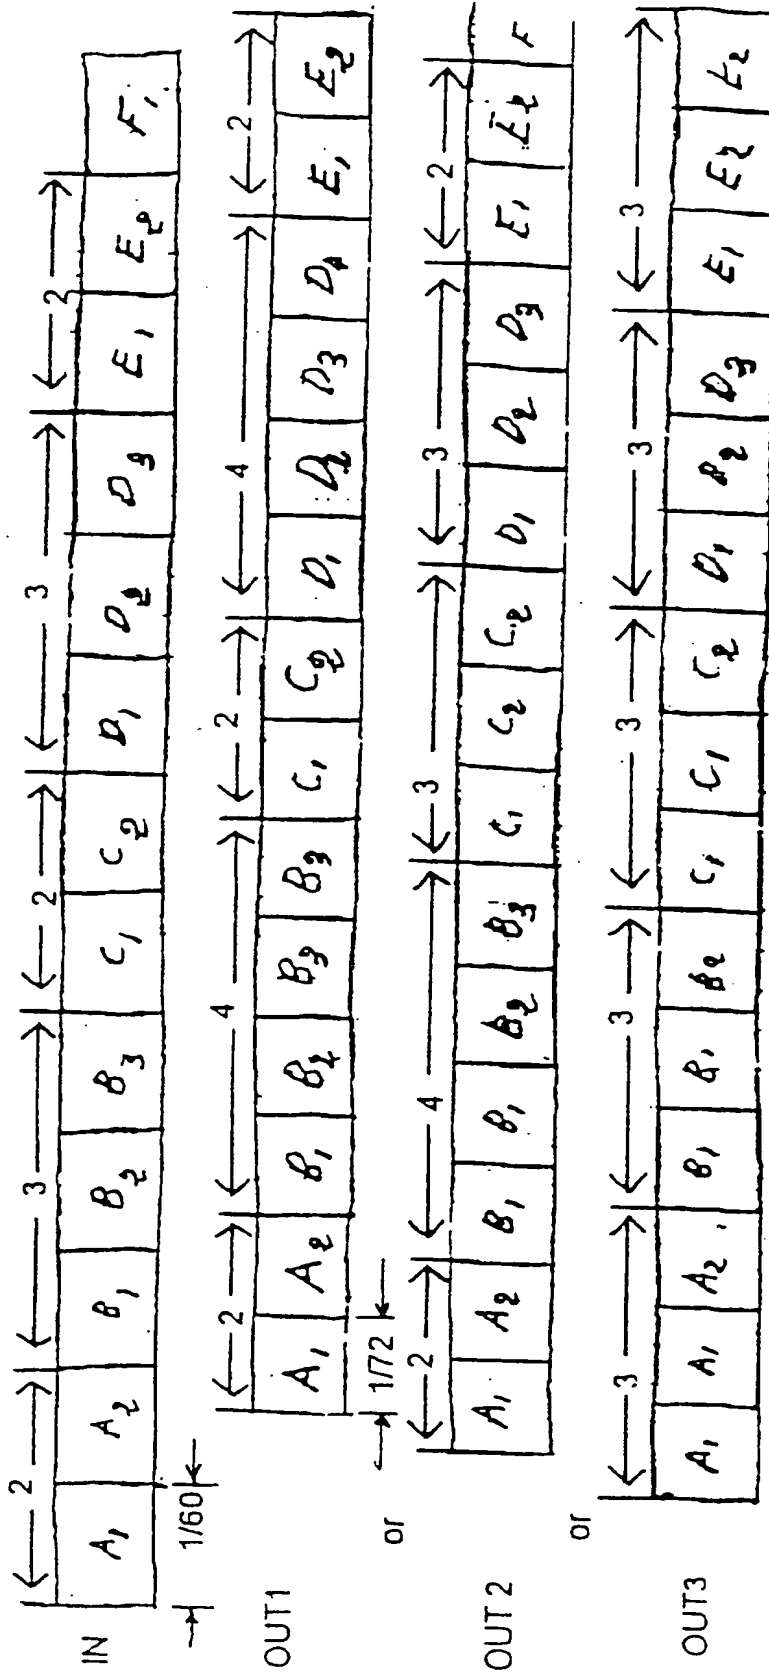 2 3 2 3 2
IN A1 A2 B1 B2 B3 C1 C2 D1 D2 D3 E1 E2 F1
1/60
2 4 2 4 2
OUT1 A1 A2 B1 B2 B3 B3 C1 C2 D1 D2 D3 D1 E1 E2
1/72
or
2 4 3 3 2
OUT2 A1 A2 B1 B1 B2 B3 C1 C2 C2 D1 D2 D3 E1 E2 F
or
3 3 3 3 3
OUT3 A1 A1 A2 B1 B1 B2 C1 C1 C2 D1 D2 D3 E1 E2 E2